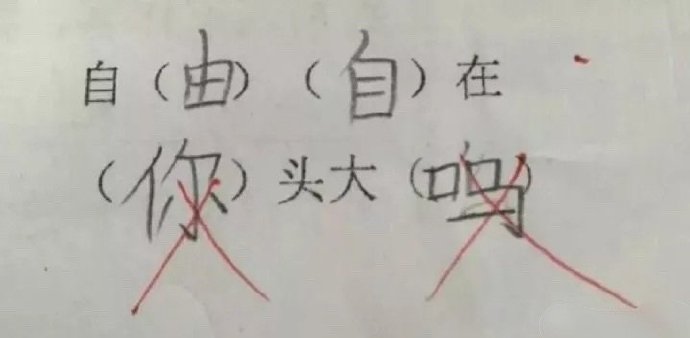 自（由）（自）在
（你）头大（鸣）